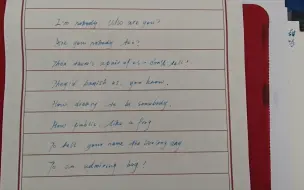 I'm nobody. Who are you?
Are you nobody too?
Then there's a pair of us - don't tell!
They'd banish us, you know.
How dreary to be somebody.
How public like a frog
To tell your name the livelong day
To an admiring bog!